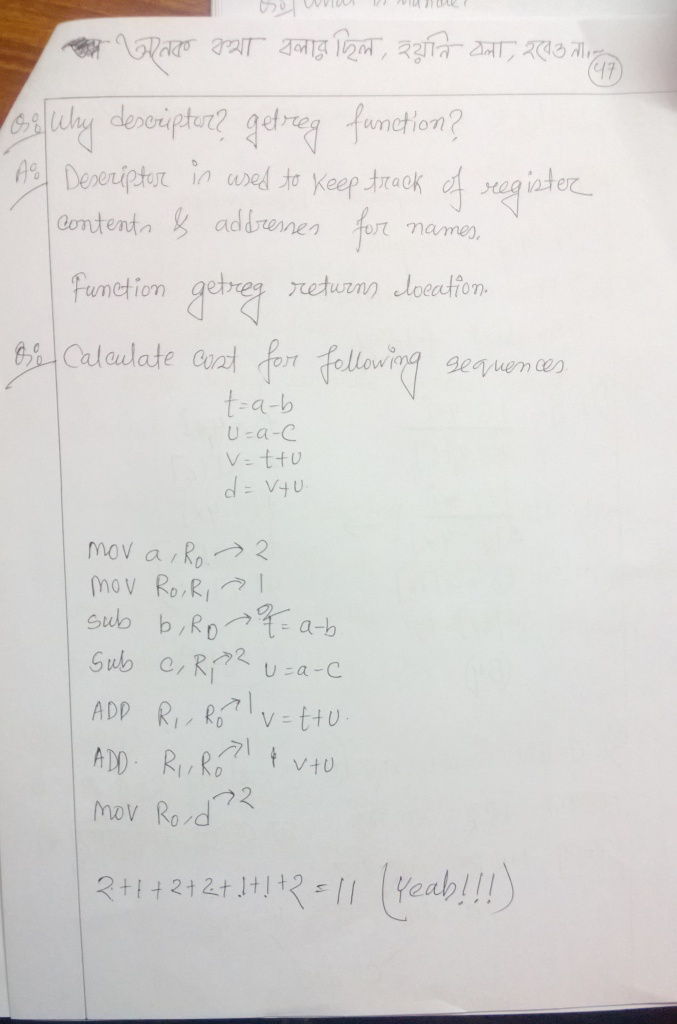 অনেক কথা বলার ছিল, হয়নি বলা, হবেও না।
47
Q: Why descriptor? getreg function?
A: Descriptor is used to keep track of register
contents & addresses for names.
Function getreg returns location.
Q: Calculate cost for following sequences
t=a-b
u=a-c
v=t+u
d=v+u
mov a, R0 → 2
mov R0, R1 → 1
sub b, R0 → 2 t=a-b
sub c, R1 → 2 u=a-c
ADD R1, R0 → 1 v=t+u
ADD R1, R0 → 1 v+u
mov R0, d → 2
2+1+2+2+1+1+2=11 (Yeah!!!)